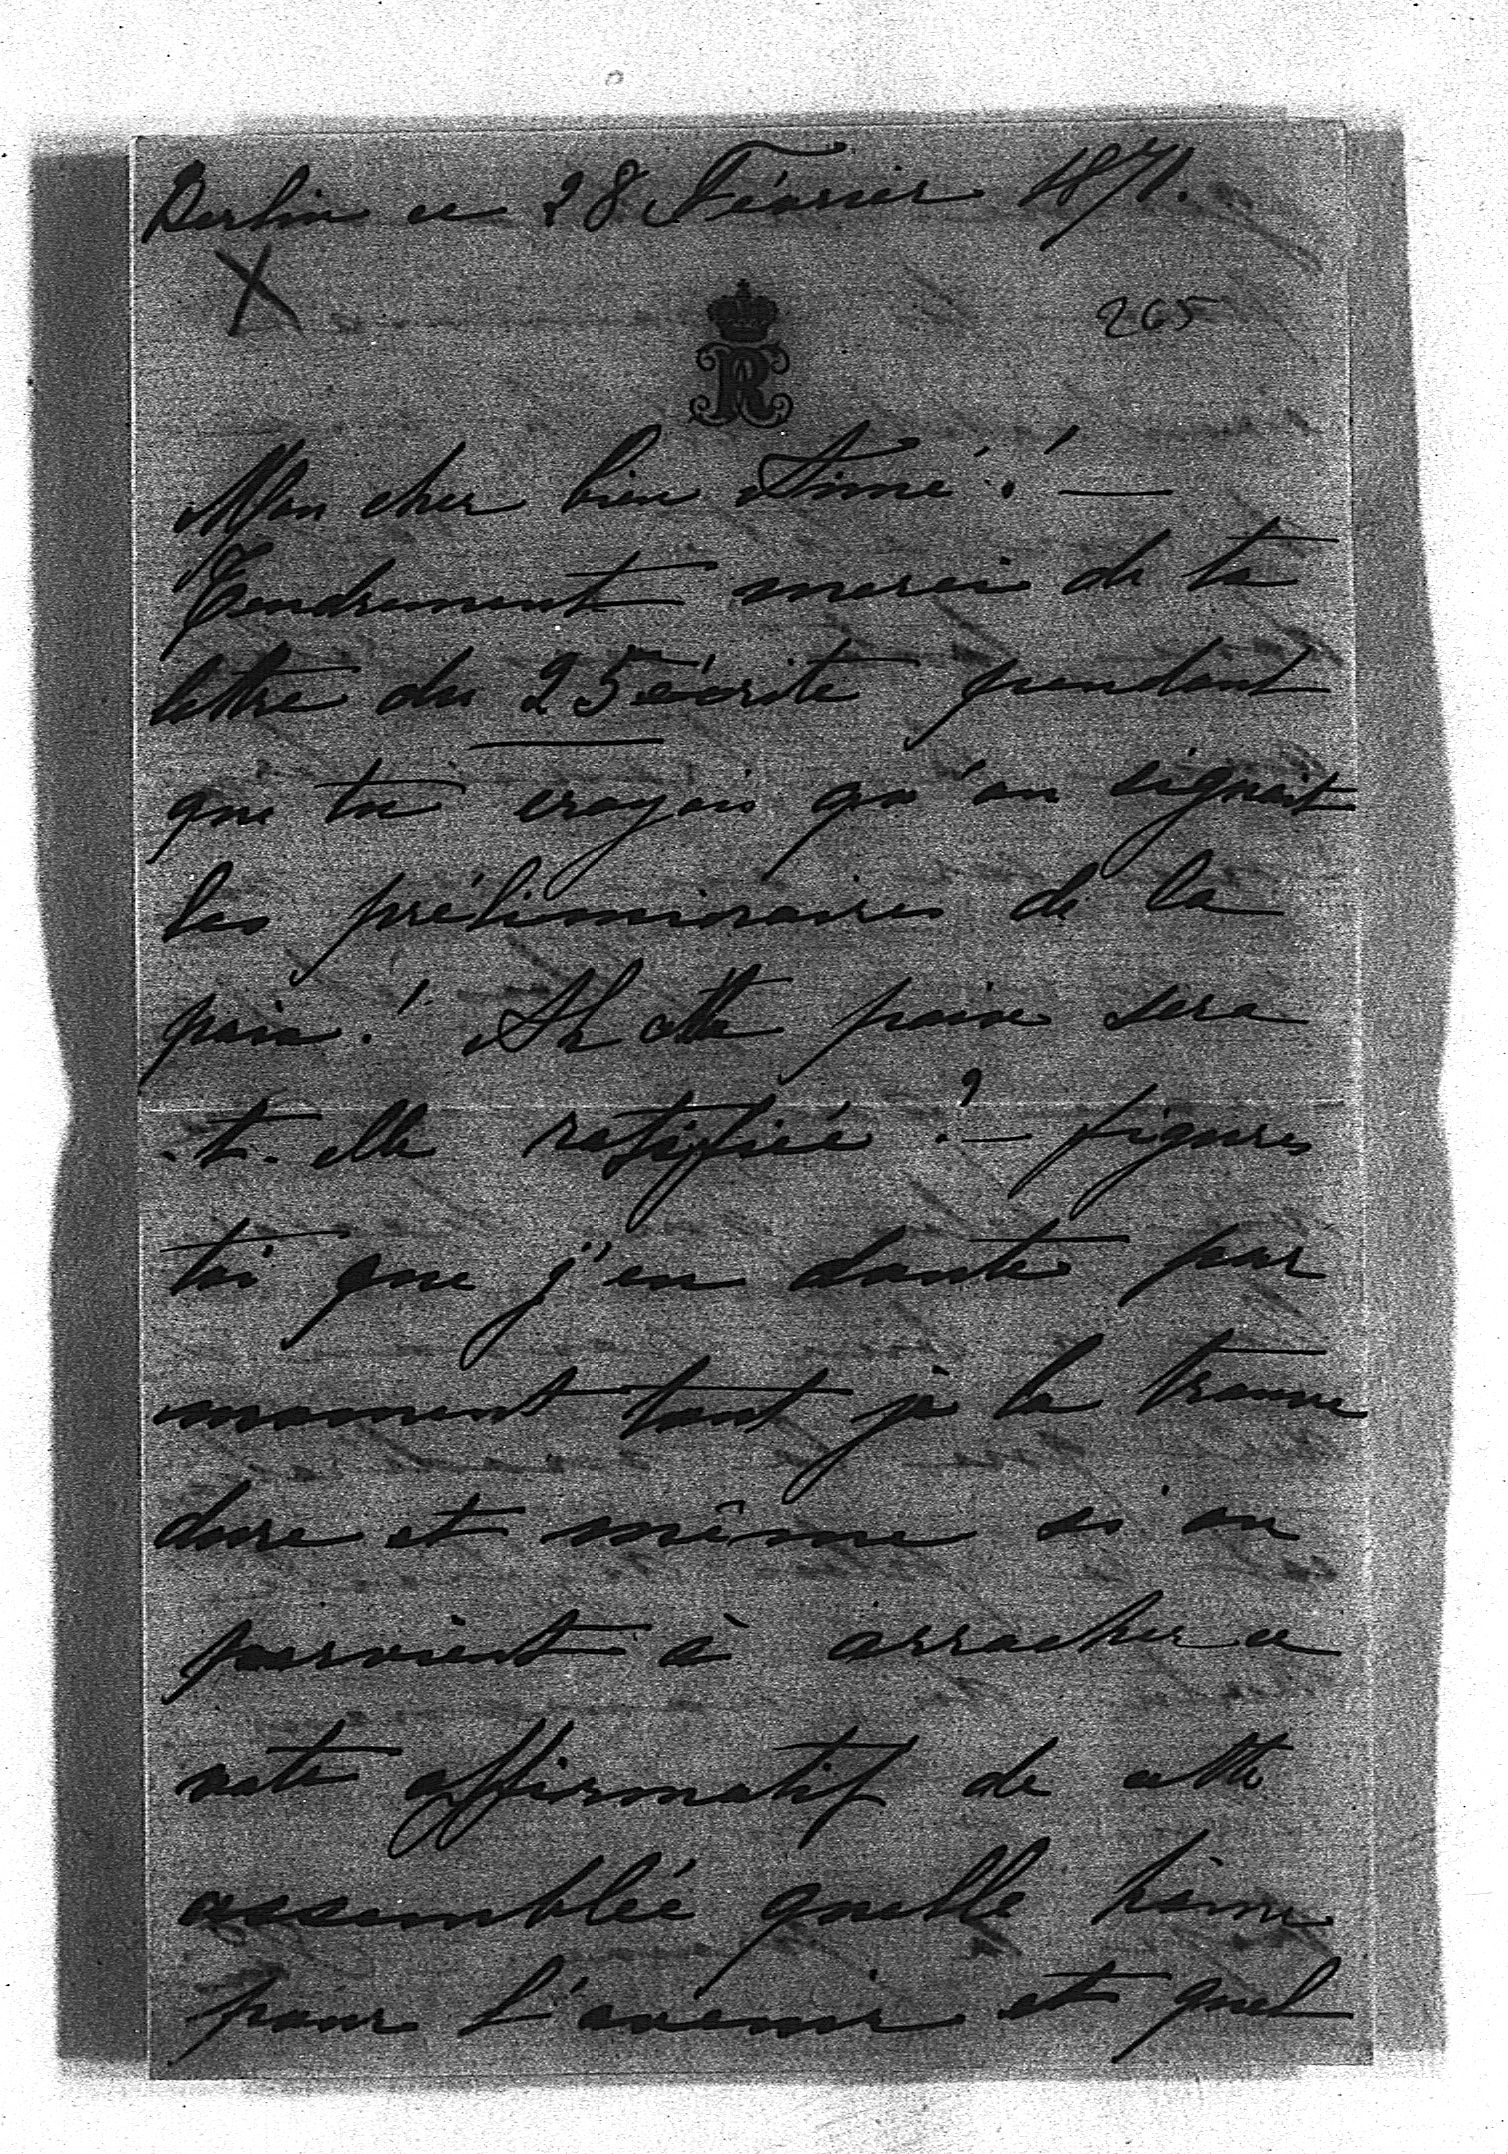 Berlin ce 28 Février 1871.
X
265
R
Mon cher bien Aimé! —
Tendrement merci de ta
lettre du 25 écrite pendant
que tu croyais qu'on signait
les préliminaires de la
paix! Ah cette paix sera
-t-elle ratifiée? — figures
toi que j'en doute par
moment tant je la trouve
dure et même si on
parvient à arracher ce
vote affirmatif de cette
assemblée quelle haine
pour l'avenir et quel